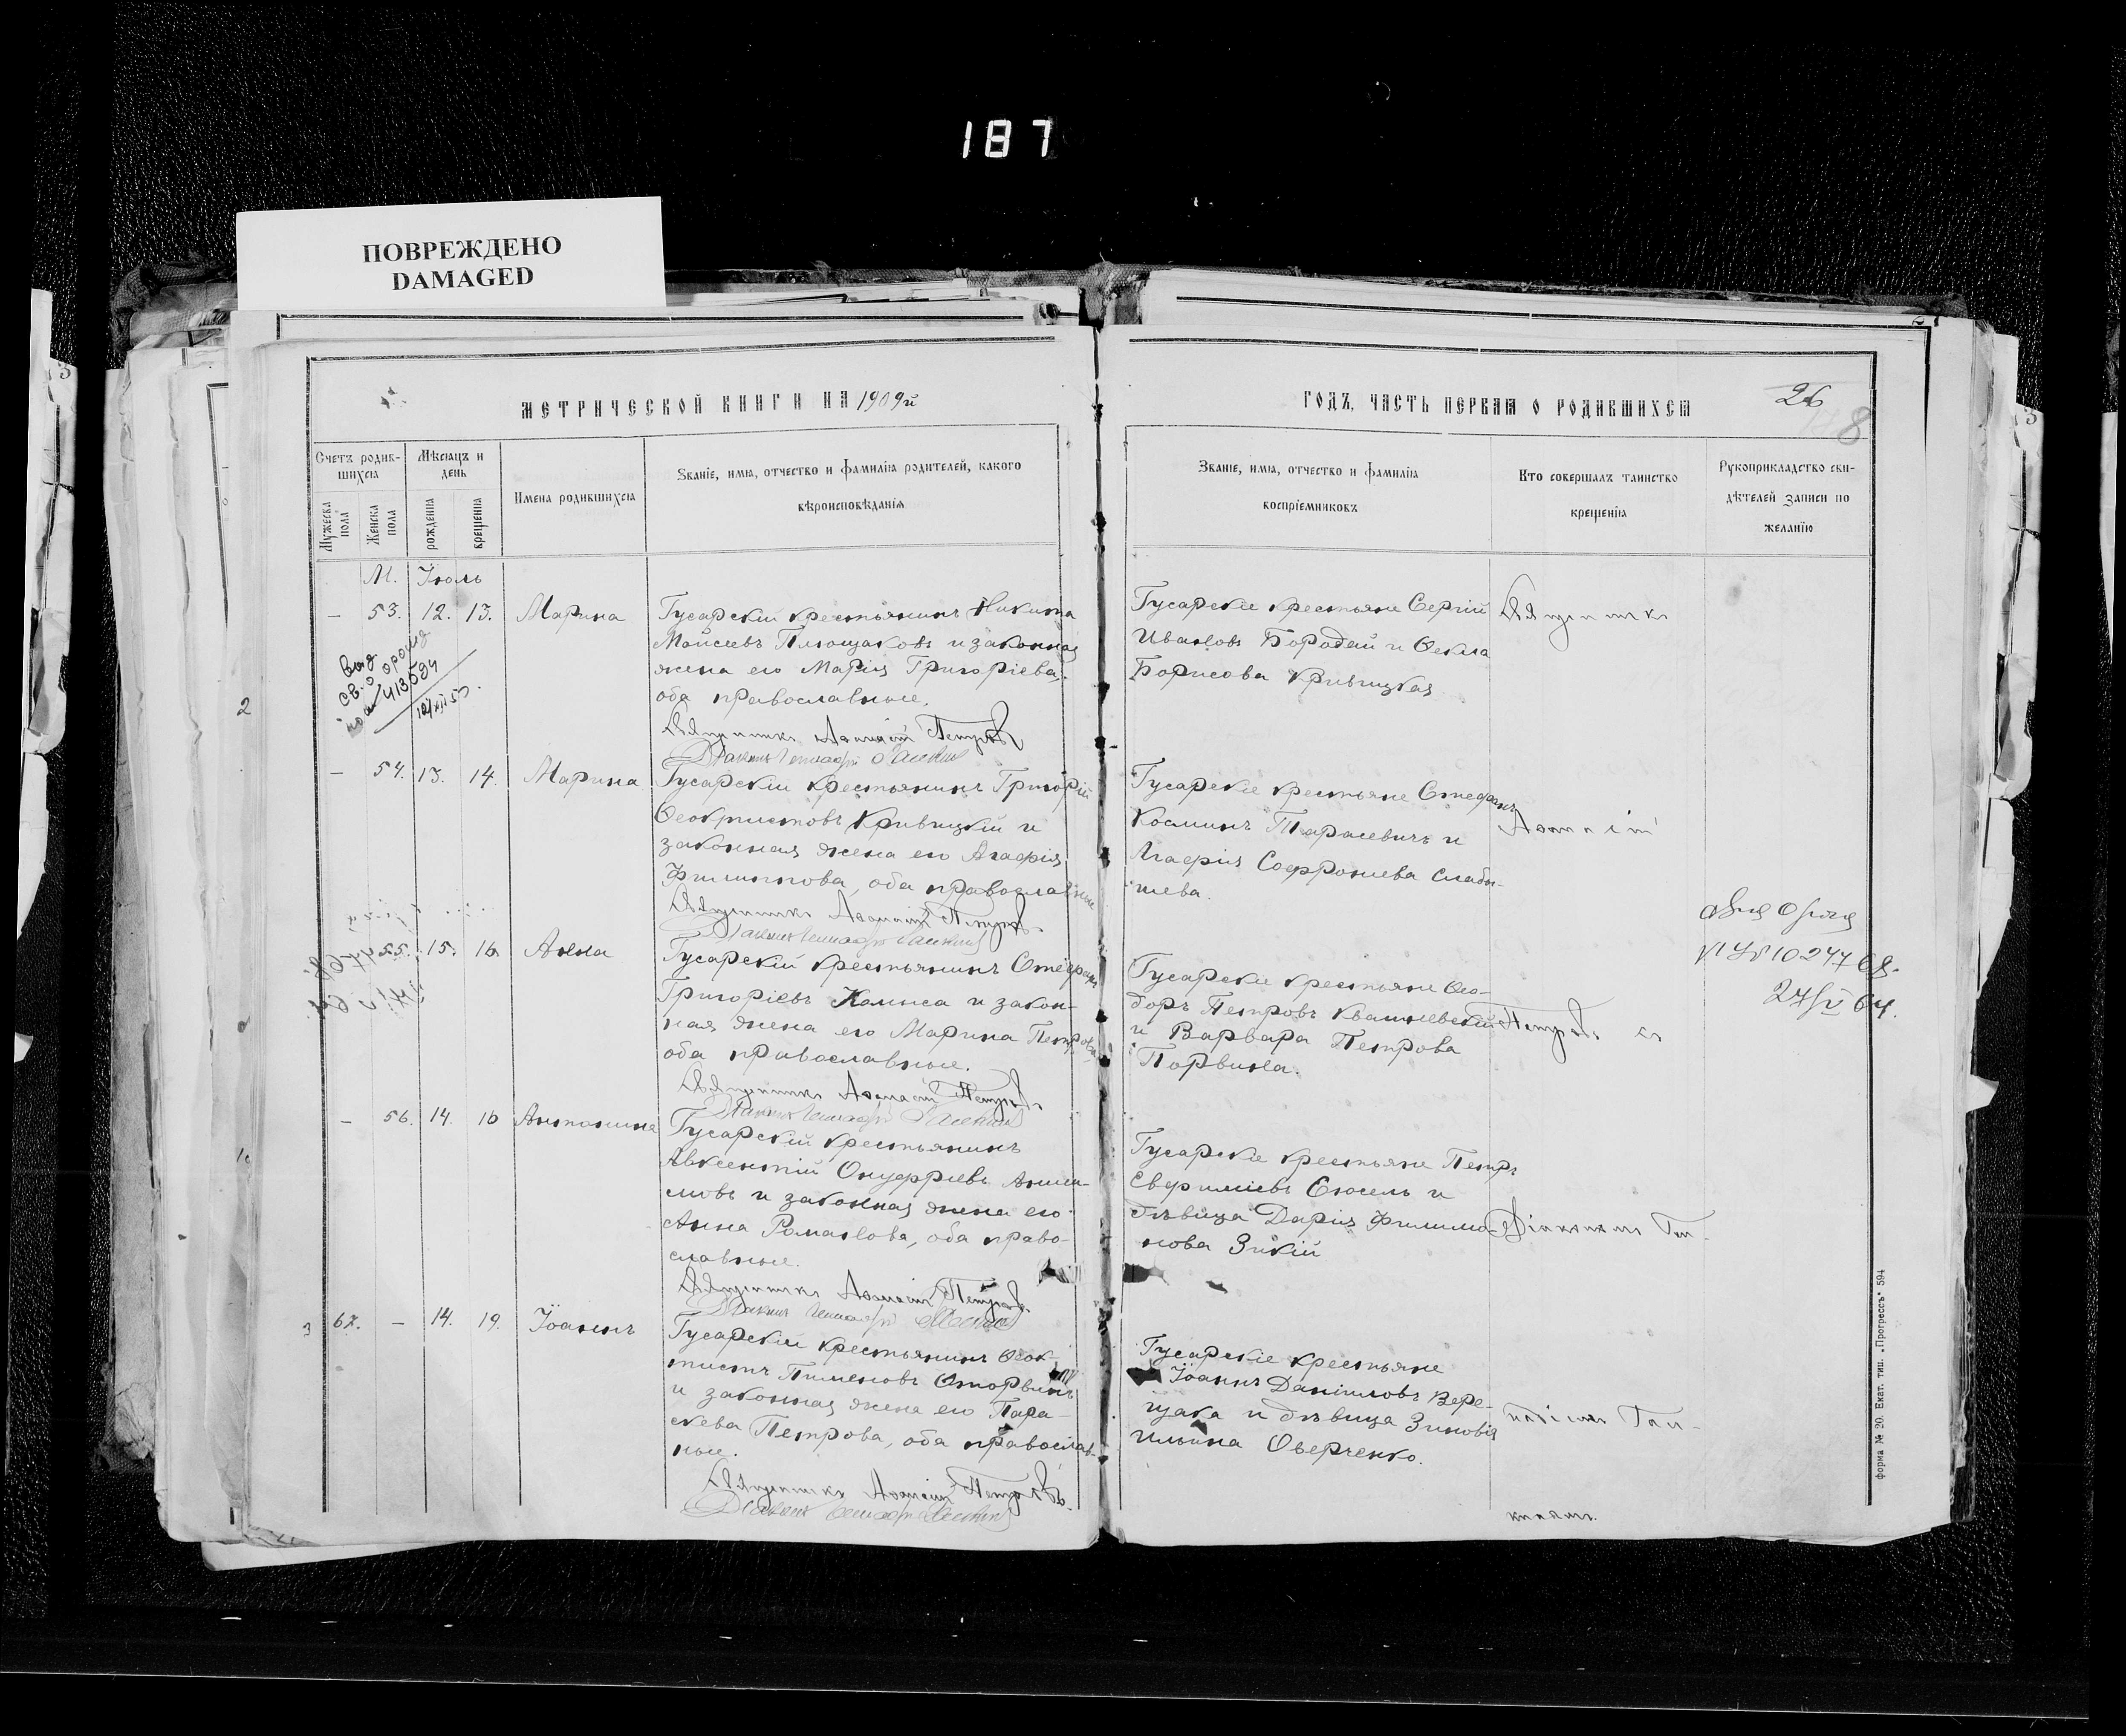 187
ПОВРЕЖДЕНО
DAMAGED
МЕТРИЧЕСКОЙ КНИГИ НА 1909й
ГОДЪ, ЧАСТЬ ПЕРВАЯ О РОДИВШИХСЯ
26
8
Счетъ родив-
шихся
Мужеска пола
Женска пола
Мѣсяцъ и
день
рожденія
крещенія
Имена родившихся
Званіе, имя, отчество и фамилія родителей, какого
вѣроисповѣданія
Званіе, имя, отчество и фамилія
воспріемниковъ
Кто совершалъ таинство
крещенія
Рукоприкладство сви-
дѣтелей записи по
желанію
М. Іюль
— 53. 12. 13. Марина
Гусарскій крестьянинъ Никита
Моисеевъ Плющаковъ и законная
жена его Марія Григоріева,
оба православные.
Священникъ Аѳанасій Петровъ
Гусарскіе крестьяне Сергій
Ивановъ Бородай и Ѳекла
Борисова Кривицкая
Священникъ
2
— 54. 13. 14. Марина
Гусарскій крестьянинъ Григорій
Ѳеоктистовъ Кривицкій и
законная жена его Агафія
Филиппова, оба православные
Священникъ Аѳанасій Петровъ
Гусарскіе крестьяне Стефанъ
Косминъ Тарасевичъ и
Агафія Софроніева Слабы-
шева.
Аѳанасій
55. 15. 16. Анна
Гусарскій крестьянинъ Стефанъ
Григоріевъ Камыса и закон-
ная жена его Марина Петрова
оба православные.
Священникъ Аѳанасій Петровъ
Гусарскіе крестьяне Ѳео-
доръ Петровъ Квашневскій
и Варвара Петрова
Порвина.
Петровъ съ
27/V 64.
— 56. 14. 16 Антонина
Гусарскій крестьянинъ
Авксентій Онуфріевъ Аниси-
мовъ и законная жена его
Анна Романова, оба право-
славные.
Священникъ Аѳанасій Петровъ
Гусарскіе крестьяне Петръ
Евфиміевъ Сюсель и
дѣвица Дарія Филимо-
нова Зикій
Діакономъ Ген-
3 67. — 14. 19. Іоаннъ
Гусарскій крестьянинъ Ѳеок-
тистъ Пименовъ Оторвинъ
и законная жена его Пара-
скева Петрова, оба православ-
ные.
Священникъ Аѳанасій Петровъ
Гусарскіе крестьяне
Іоаннъ Даніиловъ Вере-
щака и дѣвица Зиновія
Ильина Оверченко.
надіемъ Гал-
кинымъ.
форма № 20. Екат. тип. „Прогрессъ" 594